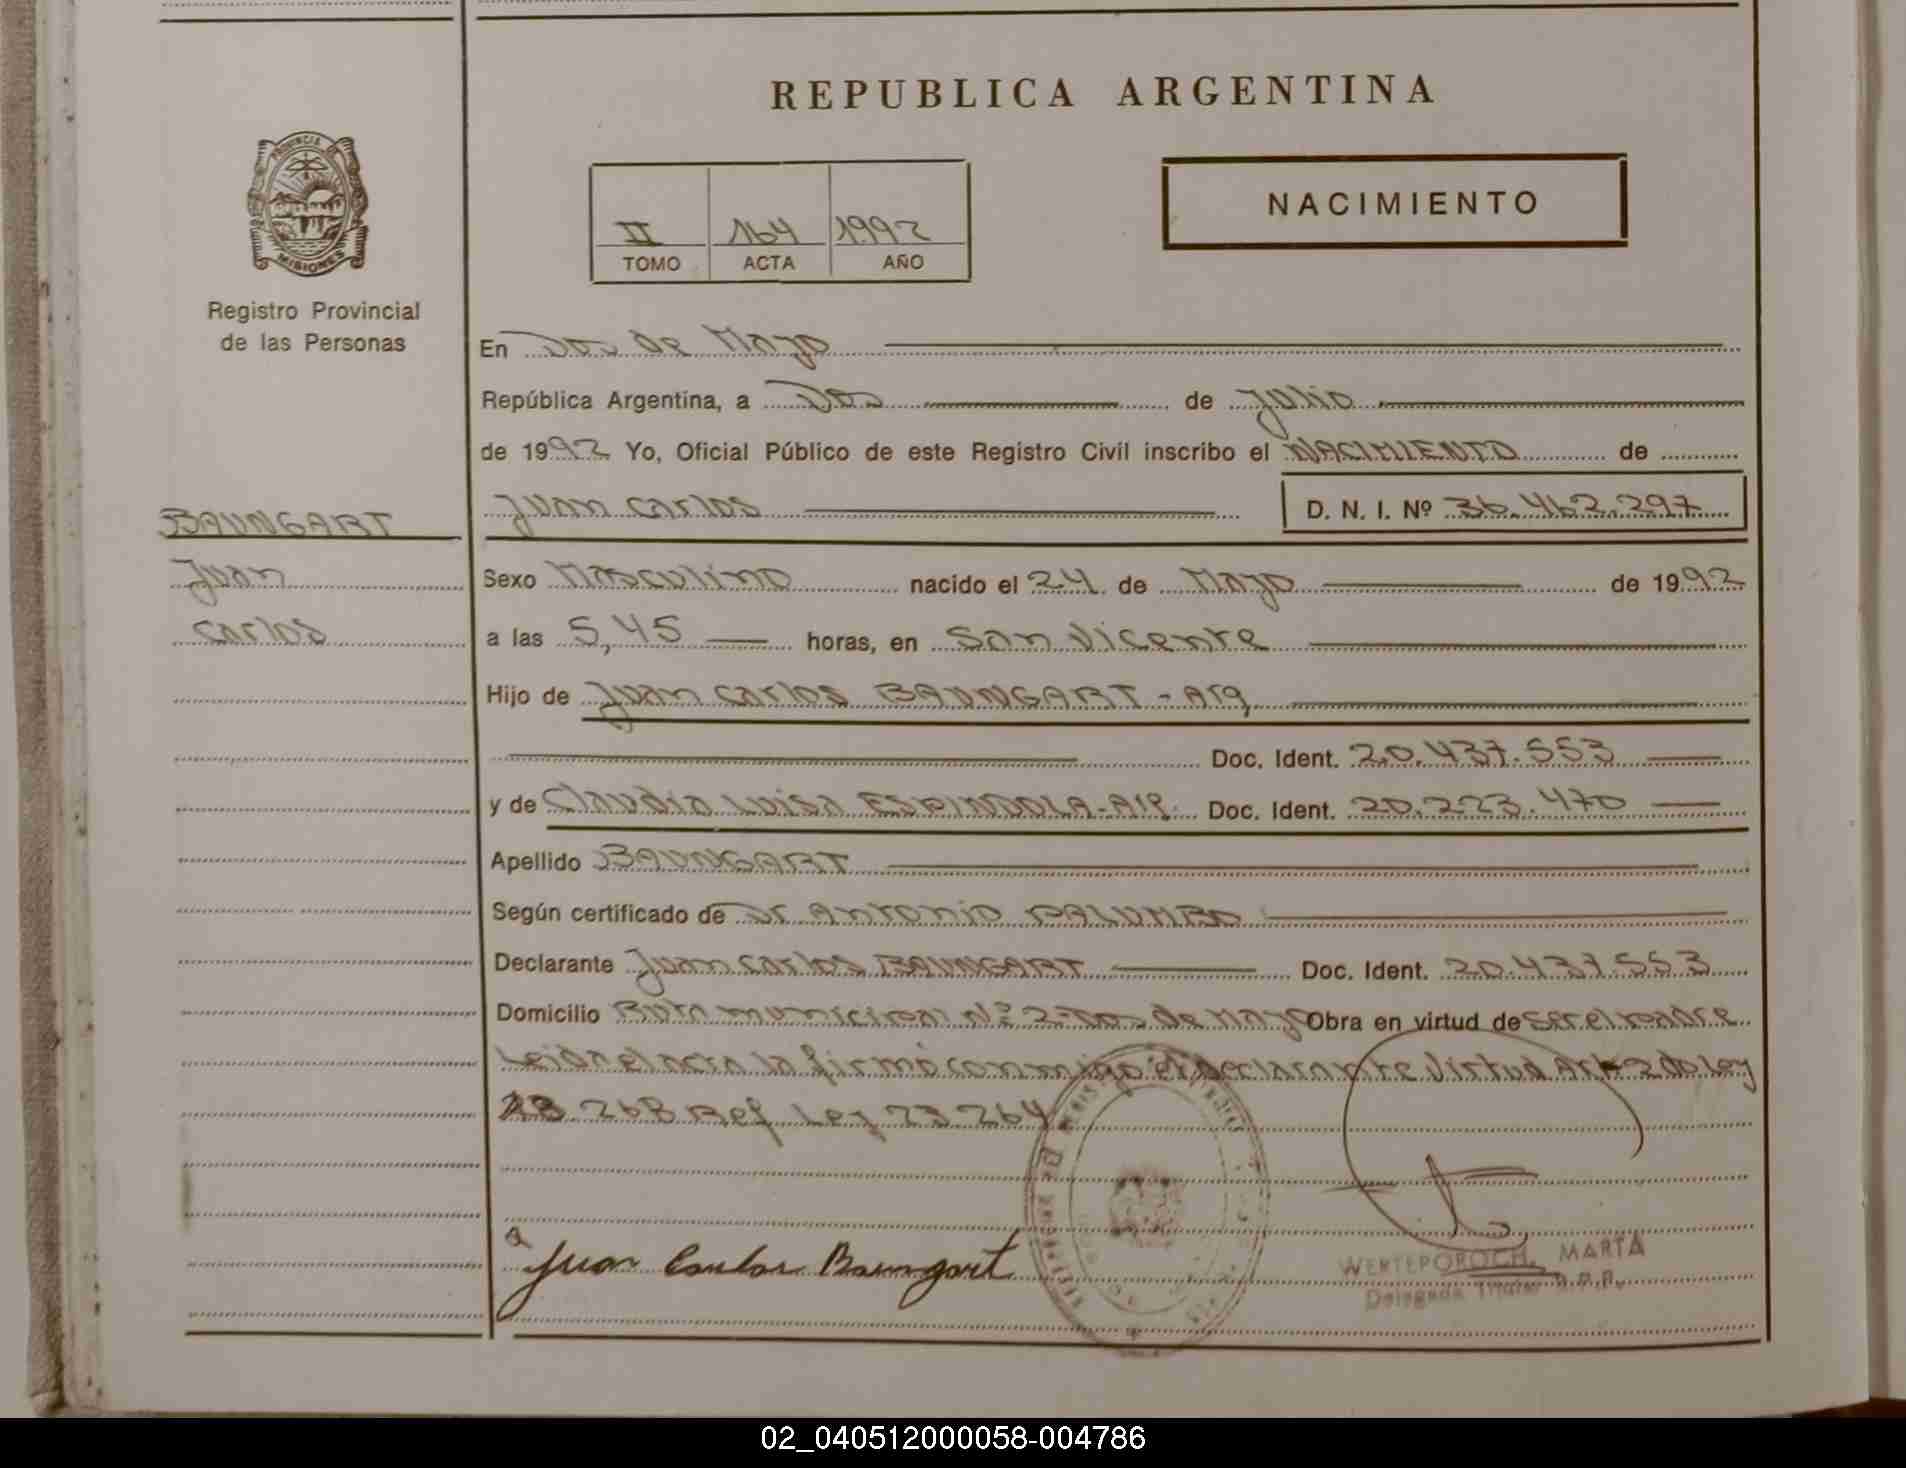 REPUBLICA ARGENTINA
PROVINCIA DE
MISIONES
Registro Provincial
de las Personas
II 164 1992
TOMO ACTA AÑO
NACIMIENTO
En Dos de Mayo
República Argentina, a Dos de Julio
de 1992 Yo, Oficial Público de este Registro Civil inscribo el NACIMIENTO de
BAUNGART
Juan
Carlos
Juan Carlos D. N. I. Nº 36.462.297
Sexo Masculino nacido el 24 de Mayo de 1992
a las 5,45 horas, en San Vicente
Hijo de Juan Carlos BAUNGART - Arg
Doc. Ident. 20.437.553
y de Claudia Luisa ESPINDOLA - Arg. Doc. Ident. 20.223.470
Apellido BAUNGART
Según certificado de Dr Antonio PALUMBO
Declarante Juan Carlos BAUNGART Doc. Ident. 20.437.553
Domicilio Ruta municipal Nº 2 - Dos de Mayo Obra en virtud de ser el padre
Leida el acta la firmó conmigo el declarante Virtud Art 2do Ley
23.268 Ref Ley 23 264
Juan Carlos Baungart
WERTEPOROCH, MARTA
Delegada Titular R.P.P.
02_040512000058-004786